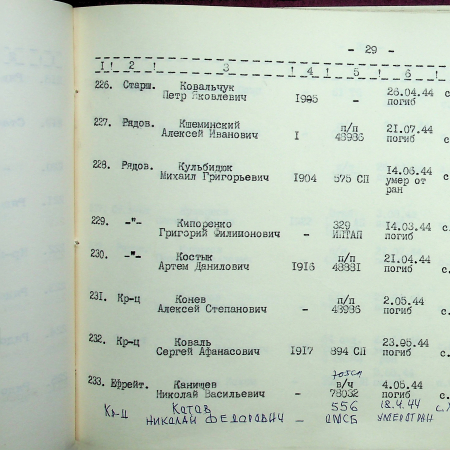 - 29 -
1 ! 2 ! 3 ! 4 ! 5 ! 6 !
226. Старш. Ковальчук 26.04.44 с
Петр Яковлевич 1905 - погиб
227. Рядов. Кшеминский п/п 21.07.44
Алексей Иванович 1 48986 погиб
228. Рядов. Кульбидюк 14.06.44
Михаил Григорьевич 1904 575 СП умер от
ран
229. -"- Кипоренко 329 14.03.44 с.
Григорий Филипонович - ИПТАП погиб
230. -"- Костык п/п 21.04.44
Артем Данилович 1916 48881 погиб
231. Кр-ц Конев п/п 2.05.44
Алексей Степанович - 43986 погиб с.
232. Кр-ц Коваль 23.05.44
Сергей Афанасович 1917 894 СП погиб с.
233. Ефрейт. Канищев в/ч 4.05.44
Николай Васильевич - 78032 погиб с.
Кр-ц Котов 556 18.4.44
Николай Федорович - ОМСБ умер от ран